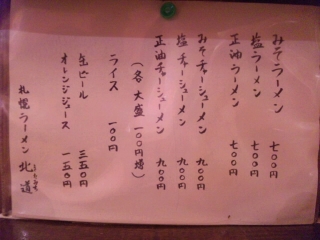 みそラーメン 七〇〇円
塩ラーメン 七〇〇円
正油ラーメン 七〇〇円
みそチャーシューメン 九〇〇円
塩チャーシューメン 九〇〇円
正油チャーシューメン 九〇〇円
(各 大盛 一〇〇円増)
ライス 一〇〇円
缶ビール 三五〇円
オレンジジュース 一五〇円
札幌ラーメン 北道